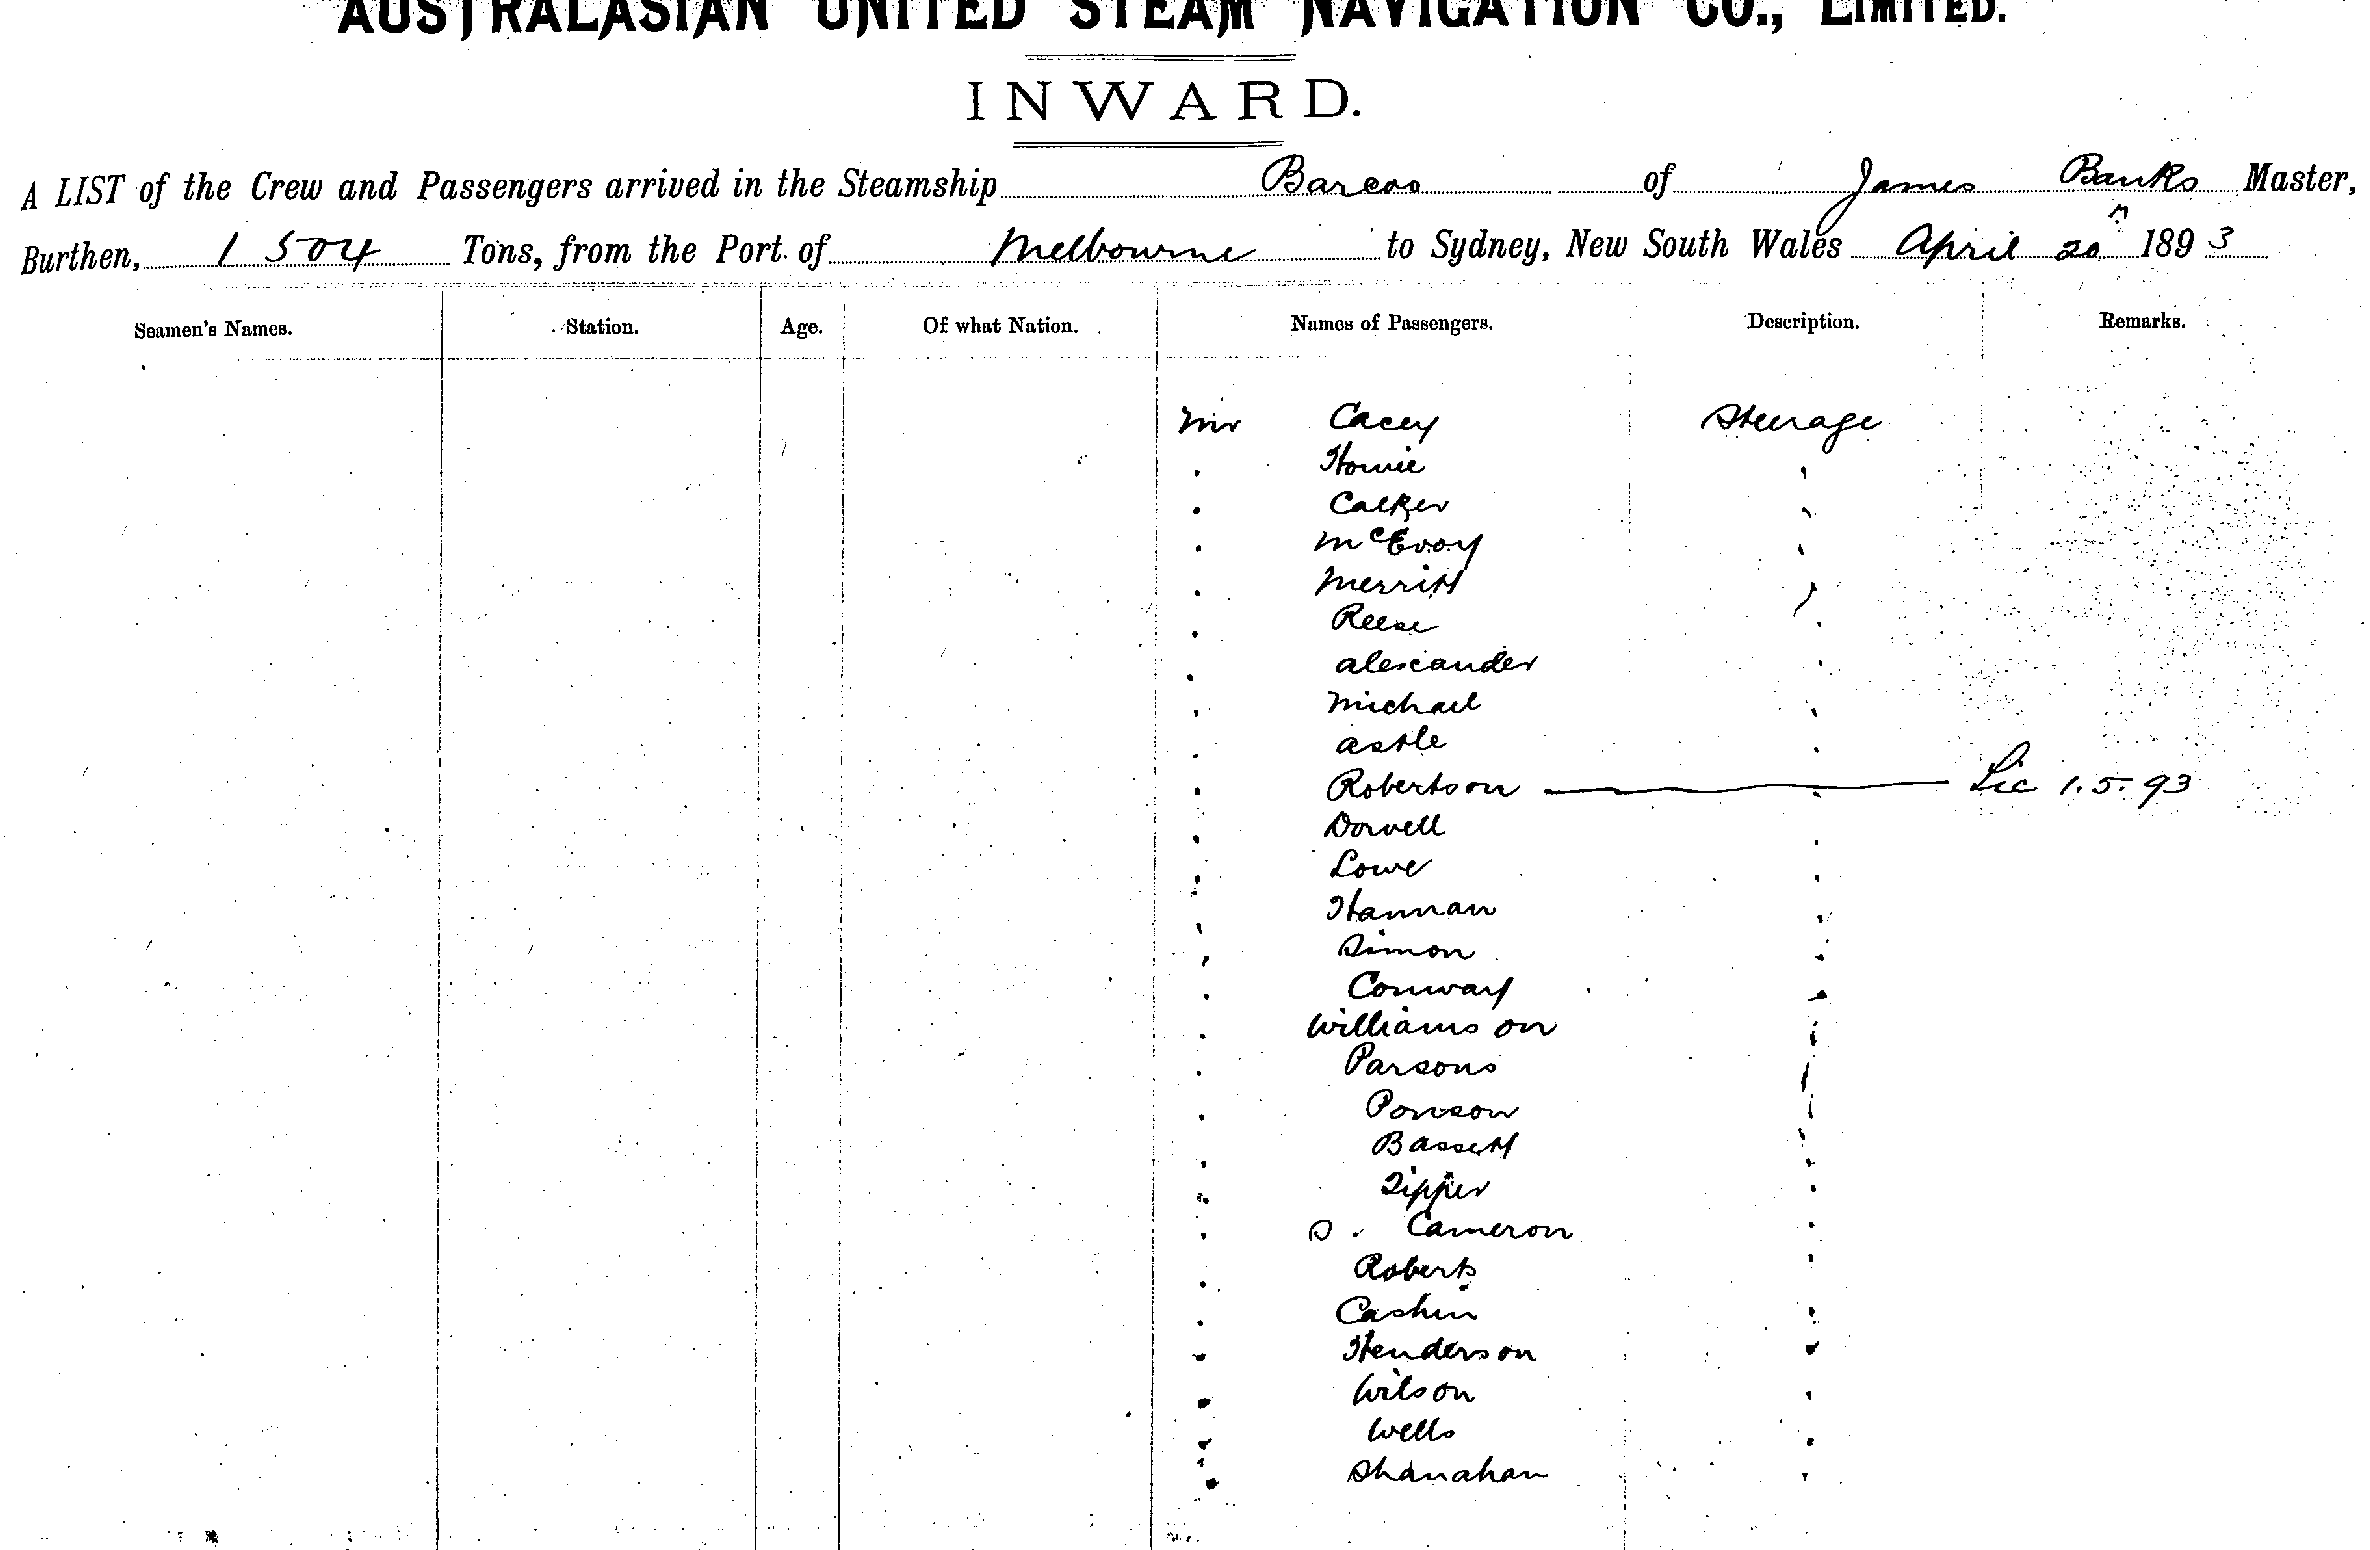 AUSTRALASIAN UNITED STEAM NAVIGATION CO., LIMITED.
INWARD.
A LIST of the Crew and Passengers arrived in the Steamship Barcoo of James Banks Master,
Burthen, 1504 Tons, from the Port of Melbourne to Sydney, New South Wales April 20th 1893
Seamen's Names. Station. Age. Of what Nation. Names of Passengers. Description. Remarks.
Mr Cacey Steerage
Howie
Calker
McEvoy
Merritt
Reese
Alexander
Michael
Astle
Robertson Lic 1.5.93
Dowell
Lowe
Hannan
Simon
Conway
Williamson
Parsons
Bassett
Tipper
S. Cameron
Roberts
Cashin
Henderson
Wilson
Wells
Shanahan